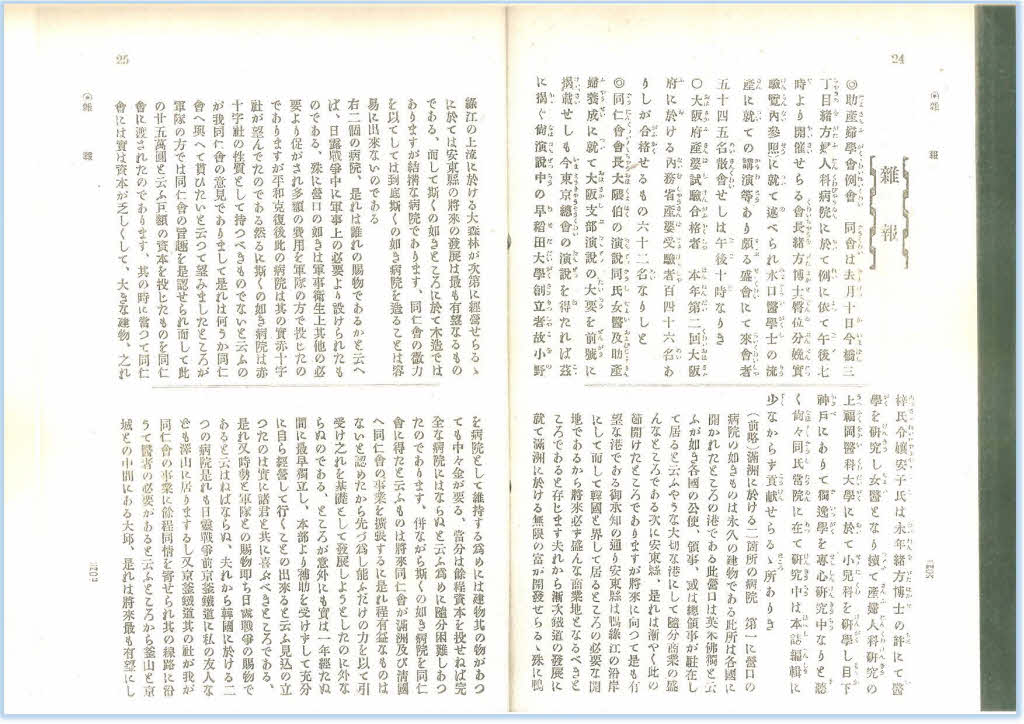 24
◎雜報
雜報
◎助產婦學會例會 同會は去月十日今橋三
丁目緒方婦人科病院に於て例に依て午後七
時より開催せらる會長緒方博士臀位分娩實
驗製內參照に就て述べられ水口醫學士の流
產に就ての講演等あり頗る盛會にて來會者
五十四五名散會せしは午後十時なりき
〇大阪府產婆試驗合格者 本年第二回大阪
府に於ける內務省產婆受驗者百四十六名あ
りしが合格せるもの六十二名なりしと
◎同仁會會長大隈伯の演說同氏女醫及助產
婦養成に就て大阪支部演說の大要を前號に
揭載せしも今東京總會の演說を得たれば茲
に揭ぐ尙演說中の早稻田大學創立者故小野
梓氏令孃安子氏は永年緒方博士の許にて醫
學を硏究し女醫となり猶て產婦人科硏究の
上福岡醫科大學に於て小兒科を硏學し目下
神戶にありて獨逸學を專心硏究中なりと聽
く尙々同氏當院に在て硏究中は本誌編輯に
少なからず貢獻せらるゝ所ありき
(前略)滿洲に於ける二箇所の病院、第一に營口の
病院の如きものは永久の建物である此所は各國に
開かれたところの港である此營口は英米佛獨と云
ふが如き各國の公使、領事、或は總領事が駐在し
て居ると云ふやうな大切な港にして隨分商業の盛
んなところである次に安東縣、是れは漸やく此の
節開けたところでありますが將來に向つて是も有
望な港である御承知の通り安東縣は鴨綠江の沿岸
にして而して韓國と界して居るところの必要な開
地であるから將來必ず盛んな商業地となるべきと
ころであると存じます夫れから漸次鐵道の發展に
就て滿洲に於ける無限の富が開發せらるゝ殊に鴨
25
◎雜報
綠江の上流に於ける大森林が次第に經營せらるゝ
に於ては安東縣の將來の發展は最も有望なるもの
である、而して斯くの如きところに於て木造では
ありますが結搆な病院であります、同仁會の微力
を以てしては到底斯くの如き病院を造ることは容
易に出來ないのである
右二個の病院、是れは誰れの賜物であるかと云へ
ば、日露戰爭中に軍事上の必要より設けられたも
のである、殊に營口の如きは軍事衞生上其他の必
要より促がされ多額の費用を軍隊の方で投じたの
でありますが平和克復後此の病院は其の實赤十字
社が望んでたのである然るに斯くの如き病院は赤
十字社の性質として持つべきものでないと云ふの
が我同仁會の意見でありまして是れは何うか同仁
會へ與へて貰ひたいと云つて望みましたところが
軍隊の方では同仁會の旨趣を是認せられ而して此
の廿五萬圓と云ふ巨額の資本を投じたものを同仁
會に渡されたのであります、其の時に當つて同仁
會には實は資本が乏しくして、大きな建物、之れ
を病院として維持する爲めには建物其の物があつ
ても中々金が要る、當分は餘程資本を投せねば完
全な病院にはならぬと云ふ爲めに隨分困難しあつ
たのであります、併ながら斯くの如き病院を同仁
會に得たと云ふものは將來同仁會が滿洲及び淸國
へ同仁會の事業を擴張するに是れ程有益なものは
ないと認めたから先づ爲し能ふだけの力を以て引
受け之れを基礎として發展しようとしたのに外な
らぬのである、ところが意外にも實は一年經たぬ
間に最早獨立し、本部より補助を受けずして充分
に自ら經營して行くことの出來ると云ふ見込の立
つたのは實に諸君と共に喜ぶべきところである、
是れ又時勢と軍隊との賜物卽ち日露戰爭の賜物で
あると云はねばならぬ、夫れから韓國に於ける二
つの病院是れも日露戰爭前京釜鐵道に私の友人な
ども澤山に居りまするし又京釜鐵道其の社が我が
同仁會の事業に餘程同情を寄せられ其の線路に沿
うて醫者の必要があると云ふところから釜山と京
城との中間にある大邱、是れは將來最も有望にし